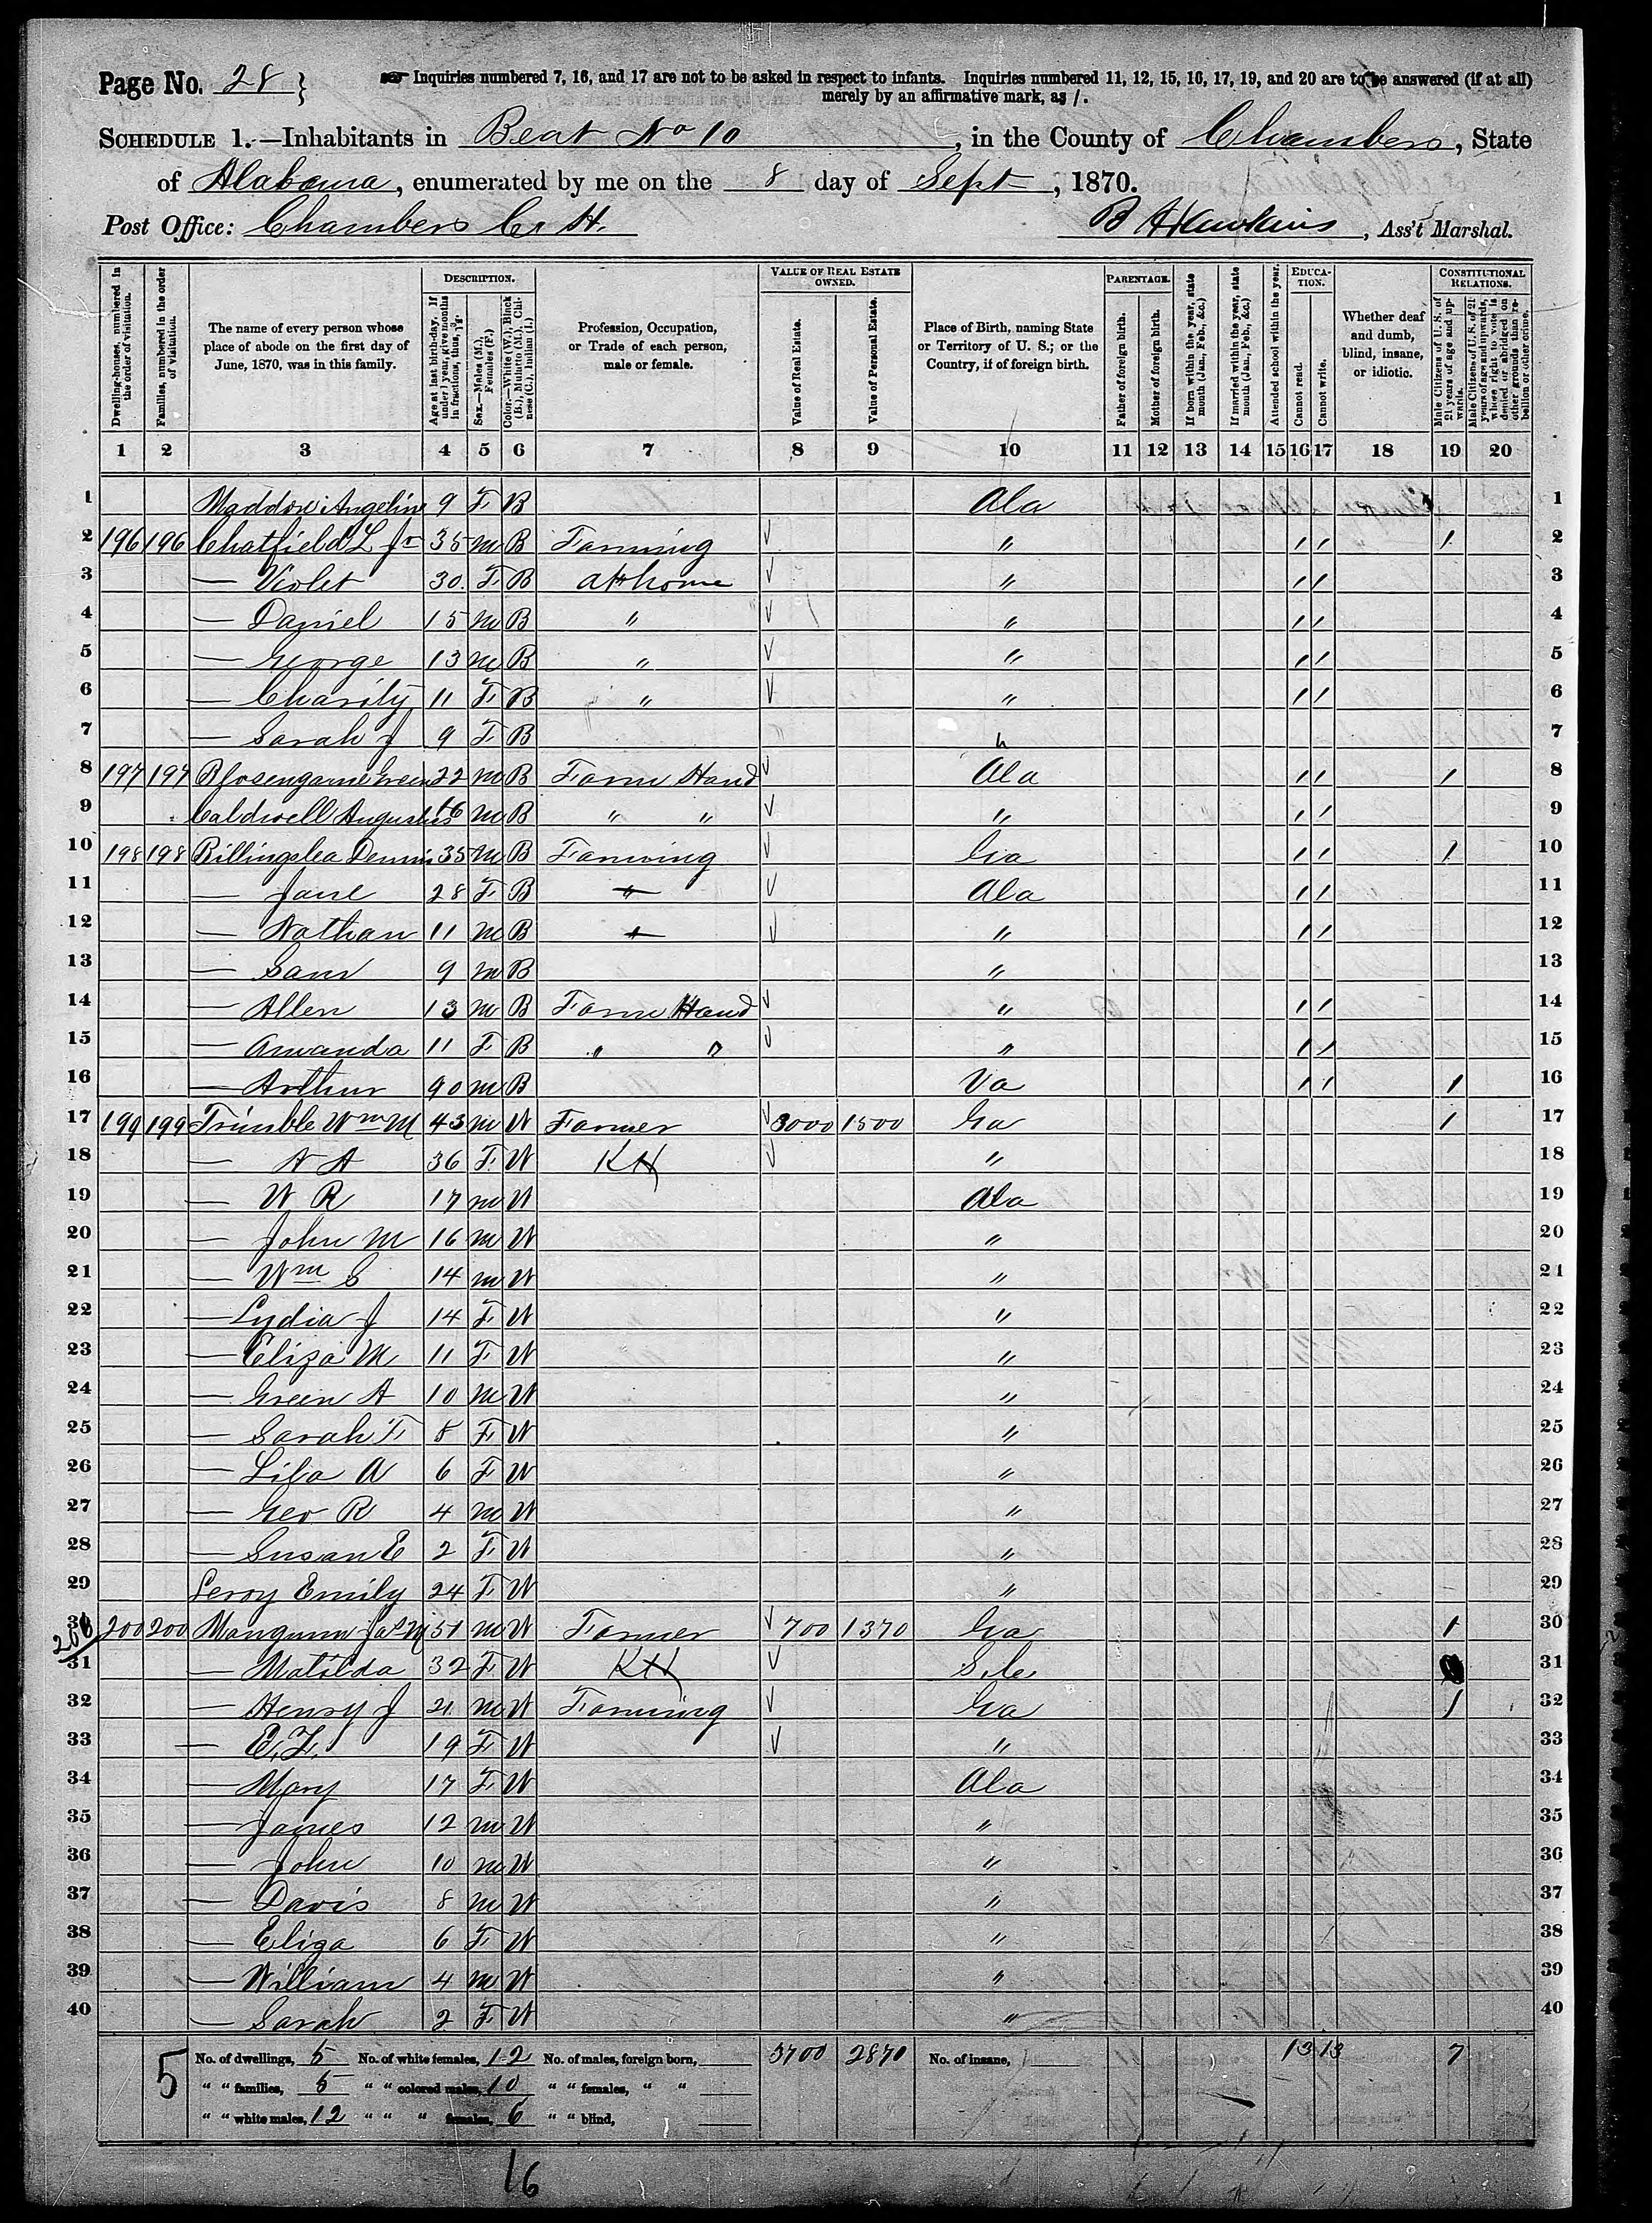 Page No. 28 }
Inquiries numbered 7, 16, and 17 are not to be asked in respect to infants. Inquiries numbered 11, 12, 15, 16, 17, 19, and 20 are to be answered (if at all)
merely by an affirmative mark, as /.
SCHEDULE 1.—Inhabitants in Beat No 10, in the County of Chambers, State
of Alabama, enumerated by me on the 8 day of Sept, 1870.
Post Office: Chambers C. H.
B A Hawkins, Ass't Marshal.
Dwelling-houses, numbered in the order of visitation.
Families, numbered in the order of visitation.
The name of every person whose place of abode on the first day of June, 1870, was in this family.
DESCRIPTION.
Age at last birth-day. If under 1 year, give months in fractions, thus, 3/12.
Sex.—Males (M.), Females (F.)
Color.—White (W.), Black (B.), Mulatto (M.), Chinese (C.), Indian (I.)
Profession, Occupation, or Trade of each person, male or female.
VALUE OF REAL ESTATE OWNED.
Value of Real Estate.
Value of Personal Estate.
Place of Birth, naming State or Territory of U. S.; or the Country, if of foreign birth.
PARENTAGE.
Father of foreign birth.
Mother of foreign birth.
If born within the year, state month (Jan., Feb., &c.)
If married within the year, state month (Jan., Feb., &c.)
Attended school within the year.
EDUCATION.
Cannot read.
Cannot write.
Whether deaf and dumb, blind, insane, or idiotic.
CONSTITUTIONAL RELATIONS.
Male Citizens of U. S. of 21 years of age and upwards.
Male Citizens of U. S. of 21 years of age and upwards, whose right to vote is denied or abridged on other grounds than rebellion or other crime.
1 2 3 4 5 6 7 8 9 10 11 12 13 14 15 16 17 18 19 20
1 Maddox Angeline 9 F B Ala 1
2 196 196 Chatfield L Jr 35 M B Farming √ " / / / 2
3 — Violet 30 F B At home √ " / / 3
4 — Daniel 15 M B " √ " / / 4
5 — George 13 M B " √ " / / 5
6 — Charity 11 F B " √ " / / 6
7 — Sarah J 9 F B " 7
8 197 197 Green 22 M B Farm Hand √ Ala / / / 8
9 Caldwell Augustus 16 M B " " √ " / / 9
10 198 198 Billingslea Dennis 35 M B Farming √ Ga / / / 10
11 — Jane 28 F B " √ Ala / / 11
12 — Nathan 11 M B " √ " / / 12
13 — Sam 9 M B " 13
14 — Allen 13 M B Farm Hand √ " / / 14
15 — Amanda 11 F B " " √ " / / 15
16 — Arthur 90 M B Va / / / 16
17 199 199 Trimble Wm M 43 M W Farmer √ 3000 1500 Ga / 17
18 — N A 36 F W KH √ " 18
19 — W R 17 M W Ala 19
20 — John M 16 M W " 20
21 — Wm S 14 M W " 21
22 — Lydia J 14 F W " 22
23 — Eliza M 11 F W " 23
24 — Green A 10 M W " 24
25 — Sarah F 8 F W " 25
26 — Lila A 6 F W " 26
27 — Geo R 4 M W " 27
28 — Susan E 2 F W " 28
29 Leroy Emily 24 F W " 29
30 200 200 Mangum Jas M 51 M W Farmer √ 700 1370 Ga / 30
31 — Matilda 32 F W KH √ S.C. 31
32 — Henry J 21 M W Farming √ Ga / 32
33 — E. F. 19 F W √ " 33
34 — Mary 17 F W Ala 34
35 — James 12 M W " 35
36 — John 10 M W " 36
37 — Davis 8 M W " 37
38 — Eliza 6 F W " 38
39 — William 4 M W " 39
40 — Sarah 2 F W " 40
5 No. of dwellings, 5 No. of white females, 12 No. of males, foreign born, 3700 2870 No. of insane, 13 13 7
" " families, 5 " " colored males, 10 " " females, " "
" " white males, 12 " " " females, 6 " " blind,
16